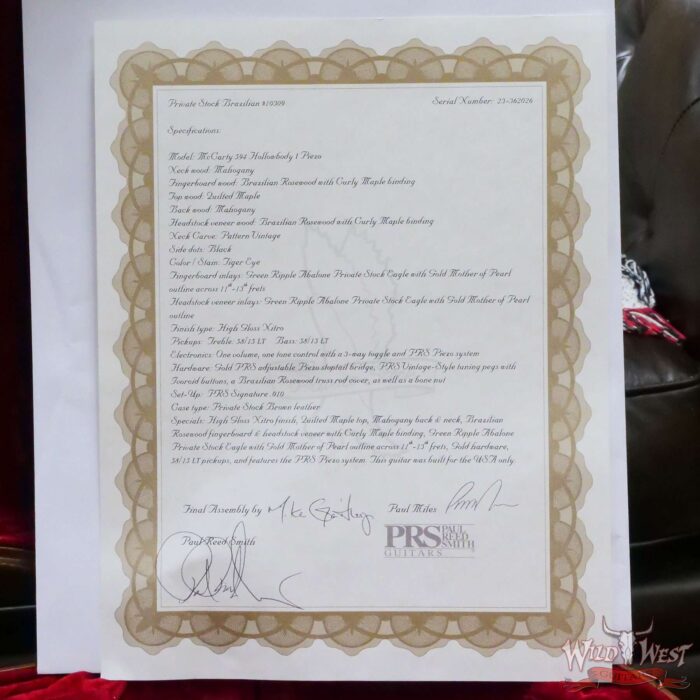 Private Stock Brazilian #10309 Serial Number: 23-362026
Specifications:
Model: McCarty 594 Hollowbody 1 Piezo
Neck wood: Mahogany
Fingerboard wood: Brazilian Rosewood with Curly Maple binding
Top wood: Quilted Maple
Back wood: Mahogany
Headstock veneer wood: Brazilian Rosewood with Curly Maple binding
Neck Carve: Pattern Vintage
Side dots: Black
Color / Stain: Tiger Eye
Fingerboard inlays: Green Ripple Abalone Private Stock Eagle with Gold Mother of Pearl
outline across 11th-13th frets
Headstock veneer inlays: Green Ripple Abalone Private Stock Eagle with Gold Mother of Pearl
outline
Finish type: High Gloss Nitro
Pickups: Treble: 58/15 LT Bass: 58/15 LT
Electronics: One volume, one tone control with a 3-way toggle and PRS Piezo system
Hardware: Gold PRS adjustable Piezo stoptail bridge, PRS Vintage-Style tuning pegs with
Ivoroid buttons, a Brazilian Rosewood truss rod cover, as well as a bone nut
Set-Up: PRS Signature .010
Case type: Private Stock Brown leather
Specials: High Gloss Nitro finish, Quilted Maple top, Mahogany back & neck, Brazilian
Rosewood fingerboard & headstock veneer with Curly Maple binding, Green Ripple Abalone
Private Stock Eagle with Gold Mother of Pearl outline across 11th-13th frets, Gold hardware,
58/15 LT pickups, and features the PRS Piezo system. This guitar was built for the USA only.
Final Assembly by Paul Miles
Paul Reed Smith
PRS PAUL REED SMITH
GUITARS
WILD WEST
GUITARS